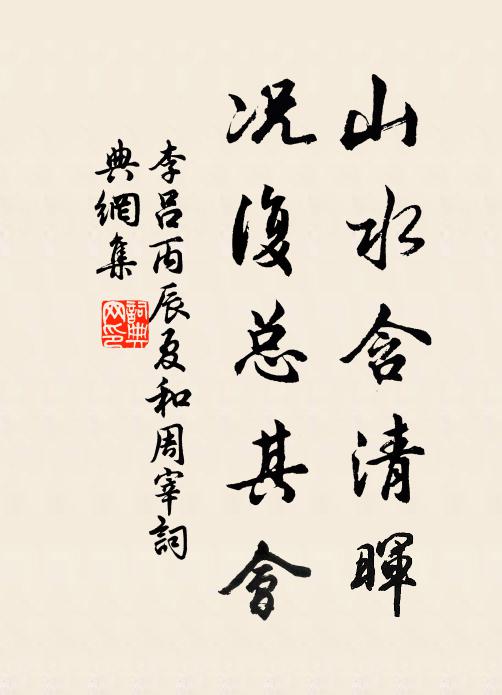 山水含清暉
况復总其會
李呂丙辰夏和周宰詞
典網集
詞典
网印